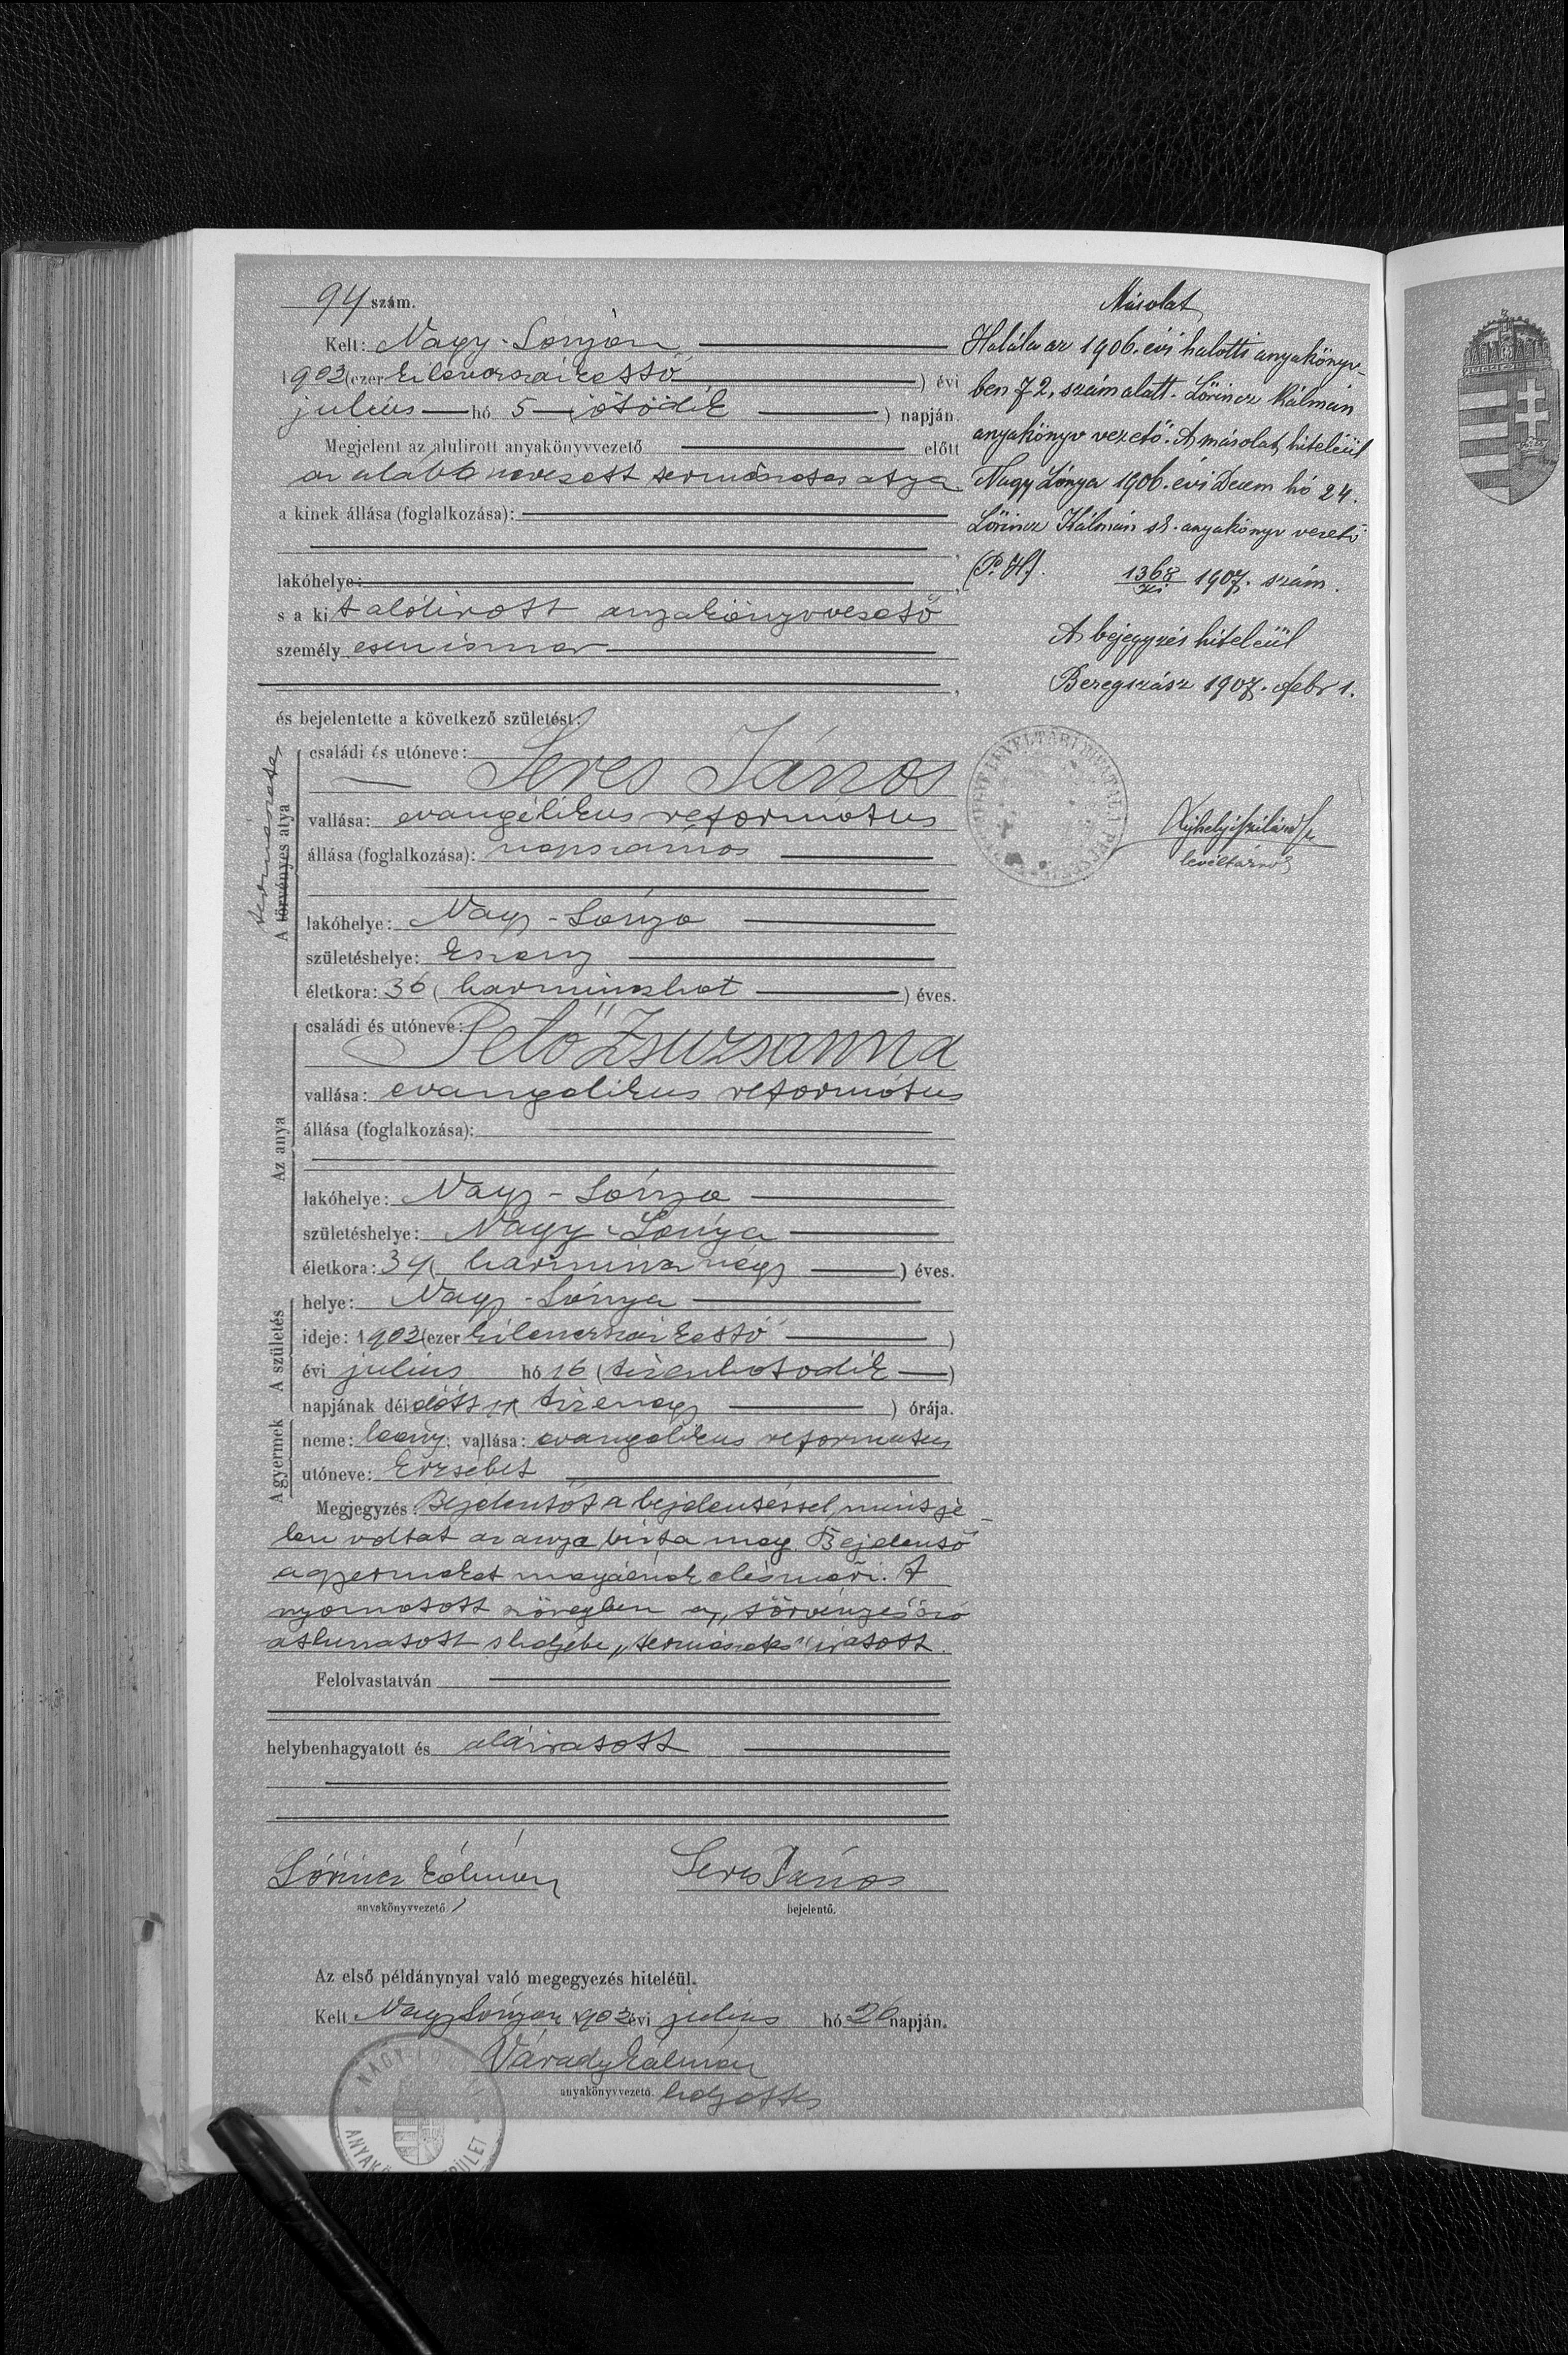 94 szám.
Kelt: Nagy-Lónyán
1902 (ezer kilencszázkettő) évi
július hó 5 (ötödik) napján.
Megjelent az alulirott anyakönyvvezető előtt
az alább nevezett természetes atya
a kinek állása (foglalkozása):
lakóhelye:
s a kit alólirott anyakönyvvezető
személyesen ismer
és bejelentette a következő születést:
természetes
A törvényes atya
családi és utóneve:
Seres János
vallása: evangélikus református
állása (foglalkozása): napszámos
lakóhelye: Nagy-Lónya
születéshelye: Eszeny
életkora: 36 (harminczhat) éves.
Az anya
családi és utóneve:
Pető Zsuzsanna
vallása: evangelikus református
állása (foglalkozása):
lakóhelye: Nagy-Lónya
születéshelye: Nagy-Lónya
életkora: 34 (harmincznégy) éves.
A születés
helye: Nagy-Lónya
ideje: 1902 (ezer kilenczszázkettő)
évi július hó 16 (tizenhatodik)
napjának délelőtt 11 (tizenegy) órája.
A gyermek
neme: leány; vallása: evangelikus reformatus
utóneve: Erzsébet
Megjegyzés: Bejelentőt a bejelentéssel, mint je-
len voltat az anya bizta meg. Bejelentő
a gyermeket magáénak elismeri. A
nyomatott szövegben a „törvényes" szó
áthuzatott s helyébe „természetes" iratott.
Felolvastatván
helybenhagyatott és aláiratott
Lőrincz Kálmán
anyakönyvvezető
Seres János
bejelentő.
Az első példánynyal való megegyezés hiteléül.
Kelt Nagy Lónyán, 1902 évi július hó 26 napján.
Várady Kálmán
anyakönyvvezető helyettes
NAGY-
ANYAK
Másolat
Halála az 1906. évi halotti anyakönyv-
ben 72. szám alatt. Lőrincz Kálmán
anyakönyv vezető. A másolat hiteléül
Nagy Lónya 1906. évi Decem hó 24.
Lőrincz Kálmán sk. anyakönyv vezető
(P. H.) 1368/ki 1907. szám.
A bejegyzés hiteléül
Beregszász 1907. febr 1.
levéltárnok